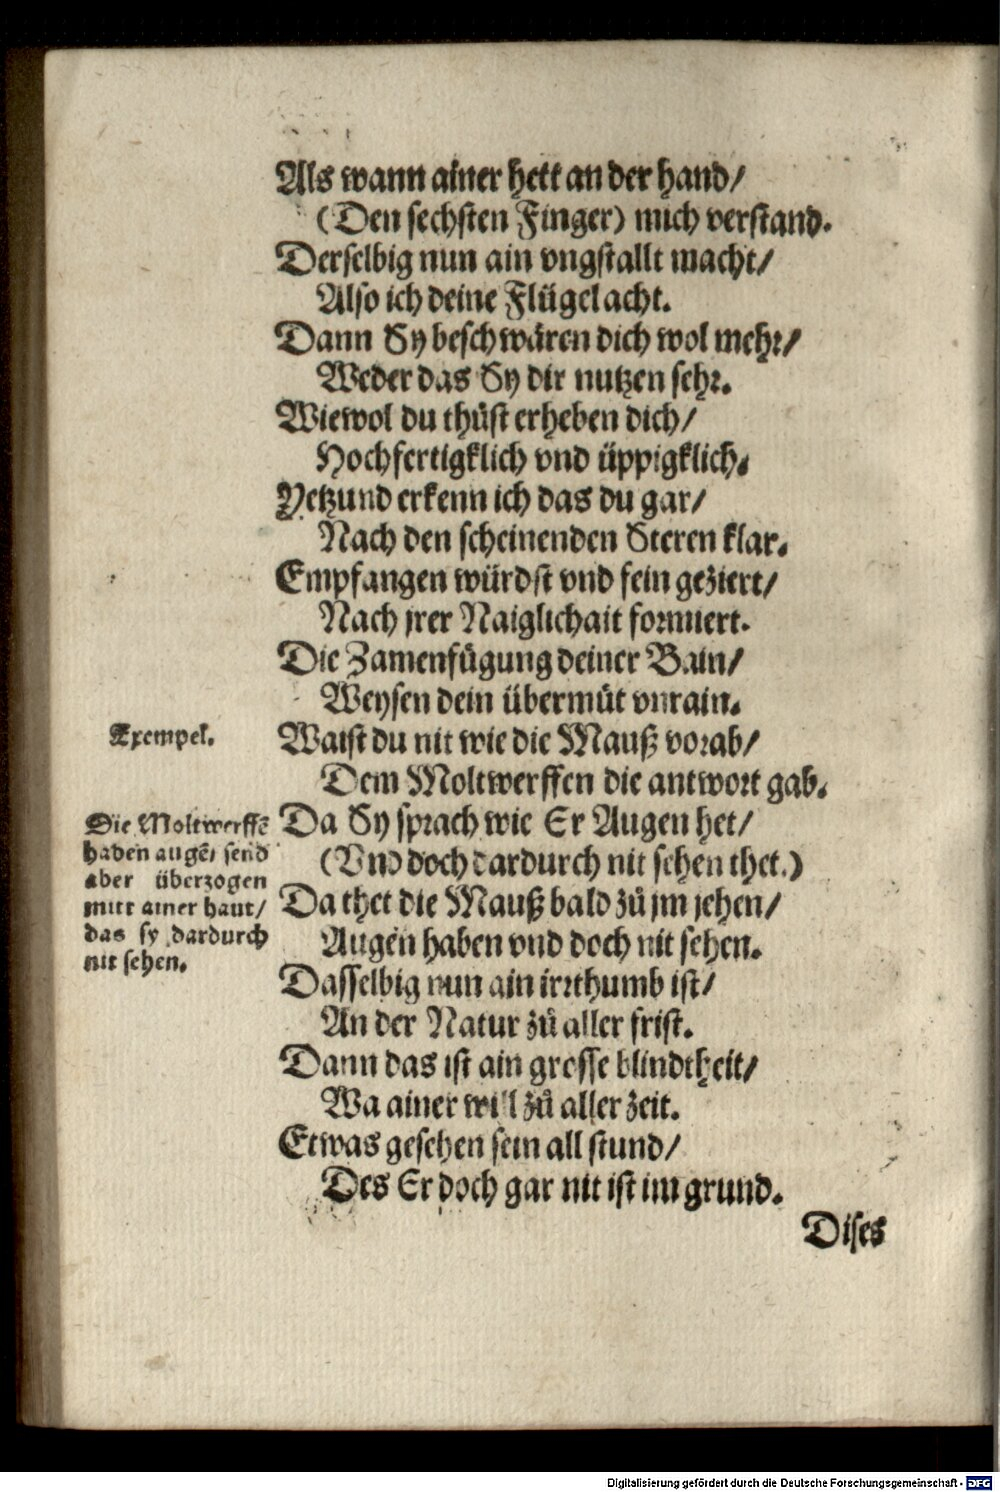 Als wann ainer hett an der hand/
(Den sechsten Finger) mich verstand.
Derselbig nun ain vngstallt macht/
Also ich deine Flügel acht.
Dann Sy beschwären dich wol mehr/
Weder das Sy dir nutzen sehr.
Wiewol du thůst erheben dich/
Hochfertigklich vnd üppigklich.
Yetzund erkenn ich das du gar/
Nach den scheinenden Steren klar.
Empfangen würdst vnd fein geziert/
Nach jrer Naiglichait formiert.
Die Zamenfügung deiner Bain/
Weysen dein übermůt vnrain.
Exempel.
Waist du nit wie die Mauß vorab/
Dem Moltwerffen die antwort gab.
Die Moltwerffẽ
haben augẽ, send
aber überzogen
mitt ainer haut/
das sy dardurch
nit sehen.
Da Sy sprach wie Er Augen het/
(Vnd doch dardurch nit sehen thet.)
Da thet die Mauß bald zů jm jehen/
Augen haben vnd doch nit sehen.
Dasselbig nun ain irrthumb ist/
An der Natur zů aller frist.
Dann das ist ain grosse blindtheit/
Wa ainer will zů aller zeit.
Etwas gesehen sein all stund/
Des Er doch gar nit ist im grund.
Dises
Digitalisierung gefördert durch die Deutsche Forschungsgemeinschaft - DFG